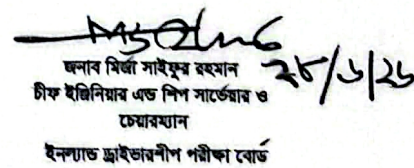 ২৮/৬/২৬
জনাব মির্জা সাইফুর রহমান
চীফ ইঞ্জিনিয়ার এন্ড শিপ সার্ভেয়ার ও
চেয়ারম্যান
ইনল্যান্ড ড্রাইভারশীপ পরীক্ষা বোর্ড